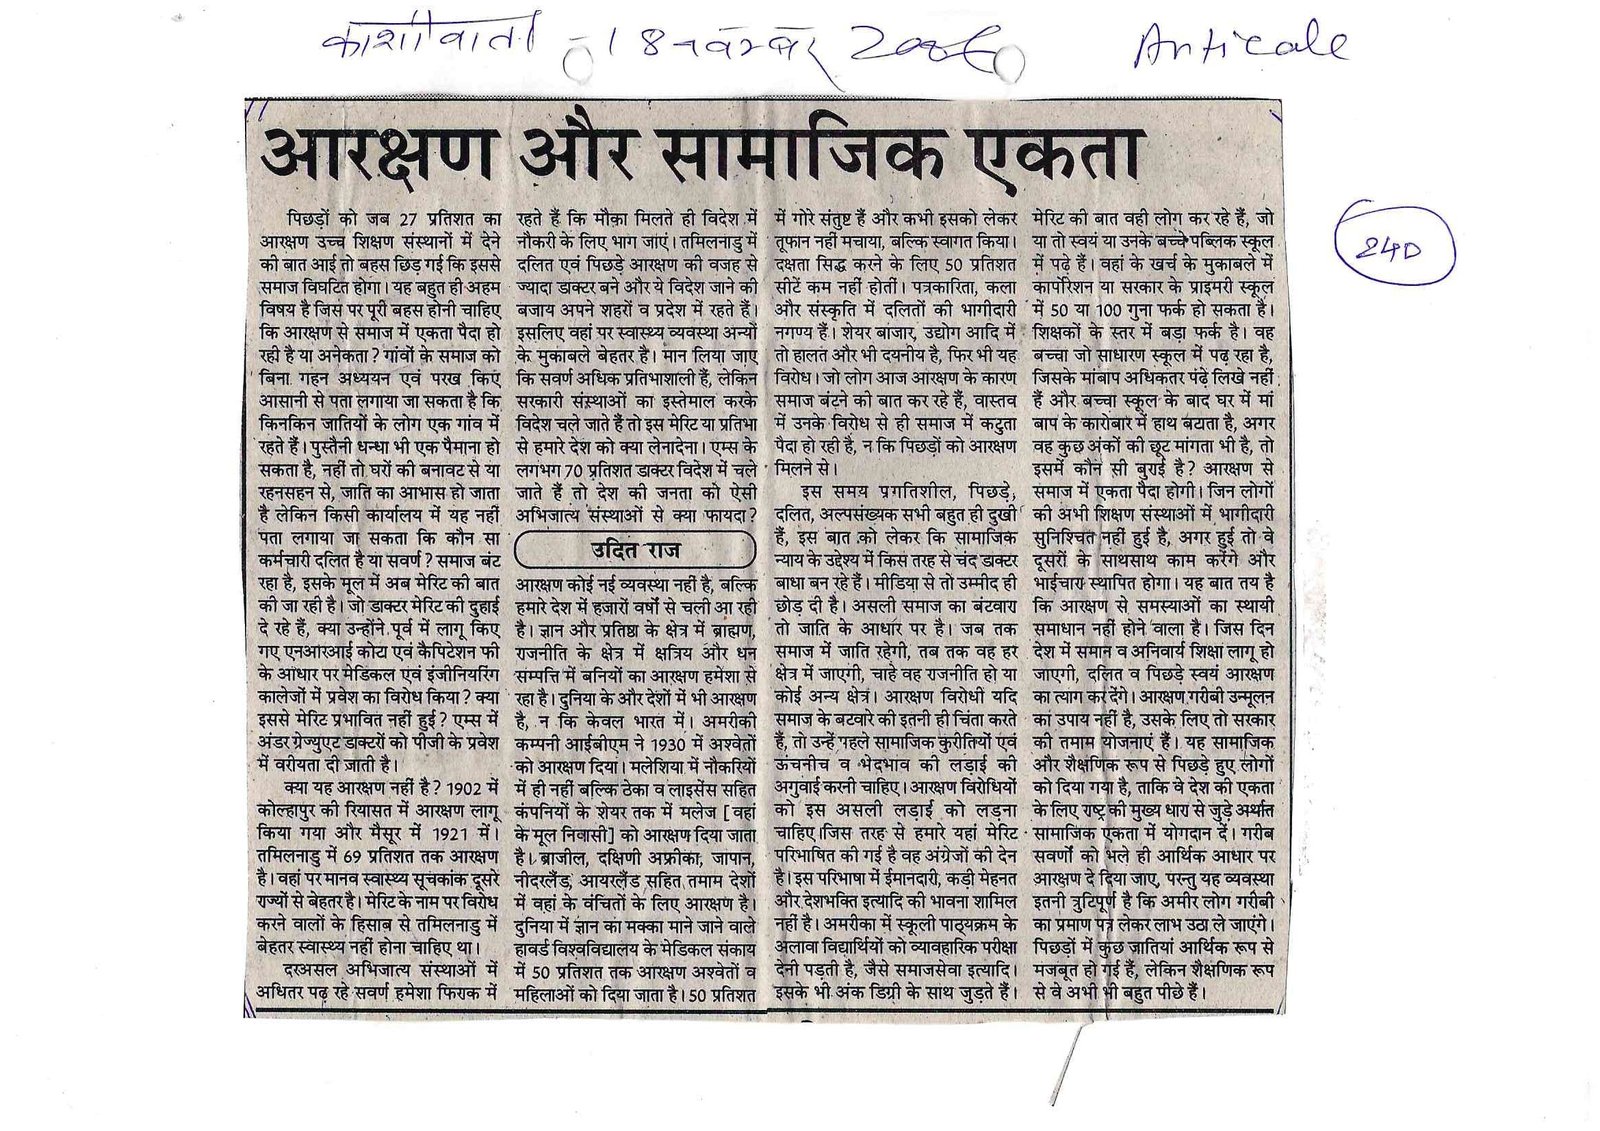 काशीवार्ता - 18 नवम्बर 2006 Articale
240
आरक्षण और सामाजिक एकता
पिछड़ों को जब 27 प्रतिशत का
आरक्षण उच्च शिक्षण संस्थानों में देने
की बात आई तो बहस छिड़ गई कि इससे
समाज विघटित होगा। यह बहुत ही अहम
विषय है जिस पर पूरी बहस होनी चाहिए
कि आरक्षण से समाज में एकता पैदा हो
रही है या अनेकता? गांवों के समाज को
बिना गहन अध्ययन एवं परख किए
आसानी से पता लगाया जा सकता है कि
किनकिन जातियों के लोग एक गांव में
रहते हैं। पुस्तैनी धन्धा भी एक पैमाना हो
सकता है, नहीं तो घरों की बनावट से या
रहनसहन से, जाति का आभास हो जाता
है लेकिन किसी कार्यालय में यह नहीं
पता लगाया जा सकता कि कौन सा
कर्मचारी दलित है या सवर्ण? समाज बंट
रहा है, इसके मूल में अब मेरिट की बात
की जा रही है। जो डाक्टर मेरिट की दुहाई
दे रहे हैं, क्या उन्होंने पूर्व में लागू किए
गए एनआरआई कोटा एवं कैपिटेशन फी
के आधार पर मेडिकल एवं इंजीनियरिंग
कालेजों में प्रवेश का विरोध किया? क्या
इससे मेरिट प्रभावित नहीं हुई? एम्स में
अंडर ग्रेज्युएट डाक्टरों को पीजी के प्रवेश
में वरीयता दी जाती है।
क्या यह आरक्षण नहीं है? 1902 में
कोल्हापुर की रियासत में आरक्षण लागू
किया गया और मैसूर में 1921 में।
तमिलनाडु में 69 प्रतिशत तक आरक्षण
है। वहां पर मानव स्वास्थ्य सूचकांक दूसरे
राज्यों से बेहतर है। मेरिट के नाम पर विरोध
करने वालों के हिसाब से तमिलनाडु में
बेहतर स्वास्थ्य नहीं होना चाहिए था।
दरअसल अभिजात्य संस्थाओं में
अधितर पढ़ रहे सवर्ण हमेशा फिराक में
रहते हैं कि मौका मिलते ही विदेश में
नौकरी के लिए भाग जाएं। तमिलनाडु में
दलित एवं पिछड़े आरक्षण की वजह से
ज्यादा डाक्टर बने और ये विदेश जाने की
बजाय अपने शहरों व प्रदेश में रहते हैं।
इसलिए वहां पर स्वास्थ्य व्यवस्था अन्यों
के मुकाबले बेहतर है। मान लिया जाए
कि सवर्ण अधिक प्रतिभाशाली हैं, लेकिन
सरकारी संस्थाओं का इस्तेमाल करके
विदेश चले जाते हैं तो इस मेरिट या प्रतिभा
से हमारे देश को क्या लेनादेना। एम्स के
लगभग 70 प्रतिशत डाक्टर विदेश में चले
जाते हैं तो देश की जनता को ऐसी
अभिजात्य संस्थाओं से क्या फायदा?
उदित राज
आरक्षण कोई नई व्यवस्था नहीं है, बल्कि
हमारे देश में हजारों वर्षों से चली आ रही
है। ज्ञान और प्रतिष्ठा के क्षेत्र में ब्राह्मण,
राजनीति के क्षेत्र में क्षत्रिय और धन
सम्पत्ति में बनियों का आरक्षण हमेशा से
रहा है। दुनिया के और देशों में भी आरक्षण
है, न कि केवल भारत में। अमरीकी
कम्पनी आईबीएम ने 1930 में अश्वेतों
को आरक्षण दिया। मलेशिया में नौकरियों
में ही नहीं बल्कि ठेका व लाइसेंस सहित
कंपनियों के शेयर तक में मलेज [ वहां
के मूल निवासी] को आरक्षण दिया जाता
है। ब्राजील, दक्षिणी अफ्रीका, जापान,
नीदरलैंड, आयरलैंड सहित तमाम देशों
में वहां के वंचितों के लिए आरक्षण है।
दुनिया में ज्ञान का मक्का माने जाने वाले
हावर्ड विश्वविद्यालय के मेडिकल संकाय
में 50 प्रतिशत तक आरक्षण अश्वेतों व
महिलाओं को दिया जाता है। 50 प्रतिशत
में गोरे संतुष्ट हैं और कभी इसको लेकर
तूफान नहीं मचाया, बल्कि स्वागत किया।
दक्षता सिद्ध करने के लिए 50 प्रतिशत
सीटें कम नहीं होतीं। पत्रकारिता, कला
और संस्कृति में दलितों की भागीदारी
नगण्य हैं। शेयर बाजार, उद्योग आदि में
तो हालत और भी दयनीय है, फिर भी यह
विरोध। जो लोग आज आरक्षण के कारण
समाज बंटने को बात कर रहे हैं, वास्तव
में उनके विरोध से ही समाज में कटुता
पैदा हो रही है, न कि पिछड़ों को आरक्षण
मिलने से।
इस समय प्रगतिशील, पिछड़े,
दलित, अल्पसंख्यक सभी बहुत ही दुखी
हैं, इस बात को लेकर कि सामाजिक
न्याय के उद्देश्य में किस तरह से चंद डाक्टर
बाधा बन रहे हैं। मीडिया से तो उम्मीद ही
छोड़ दी है। असली समाज का बंटवारा
तो जाति के आधार पर है। जब तक
समाज में जाति रहेगी, तब तक वह हर
क्षेत्र में जाएगी, चाहे वह राजनीति हो या
कोई अन्य क्षेत्र। आरक्षण विरोधी यदि
समाज के बटवारे की इतनी ही चिंता करते
हैं, तो उन्हें पहले सामाजिक कुरीतियों एवं
ऊंचनीच व भेदभाव की लड़ाई की
अगुवाई करनी चाहिए। आरक्षण विरोधियों
को इस असली लड़ाई को लड़ना
चाहिए।जिस तरह से हमारे यहां मेरिट
परिभाषित की गई है वह अंग्रेजों की देन
है। इस परिभाषा में ईमानदारी, कड़ी मेहनत
और देशभक्ति इत्यादि की भावना शामिल
नहीं है। अमरीका में स्कूली पाठ्यक्रम के
अलावा विद्यार्थियों को व्यावहारिक परीक्षा
देनी पड़ती है, जैसे समाजसेवा इत्यादि।
इसके भी अंक डिग्री के साथ जुड़ते हैं।
मेरिट की बात वही लोग कर रहे हैं, जो
या तो स्वयं या उनके बच्चे पब्लिक स्कूल
में पढ़े हैं। वहां के खर्च के मुकाबले में
कार्पोरेशन या सरकार के प्राइमरी स्कूल
में 50 या 100 गुना फर्क हो सकता है।
शिक्षकों के स्तर में बड़ा फर्क है। वह
बच्चा जो साधारण स्कूल में पढ़ रहा है,
जिसके मांबाप अधिकतर पंढ़े लिखे नहीं
हैं और बच्चा स्कूल के बाद घर में मां
बाप के कारोबार में हाथ बटाता है, अगर
वह कुछ अंकों की छूट मांगता भी है, तो
इसमें कौन सी बुराई है? आरक्षण से
समाज में एकता पैदा होगी। जिन लोगों
की अभी शिक्षण संस्थाओं में भागीदारी
सुनिश्चित नहीं हुई है, अगर हुई तो वे
दूसरों के साथसाथ काम करेंगे और
भाईचारा स्थापित होगा। यह बात तय है
कि आरक्षण से समस्याओं का स्थायी
समाधान नहीं होने वाला है। जिस दिन
देश में समान व अनिवार्य शिक्षा लागू हो
जाएगी, दलित व पिछड़े स्वयं आरक्षण
का त्याग कर देंगे। आरक्षण गरीबी उन्मूलन
का उपाय नहीं है, उसके लिए तो सरकार
की तमाम योजनाएं हैं। यह सामाजिक
और शैक्षणिक रूप से पिछड़े हुए लोगों
को दिया गया है, ताकि वे देश की एकता
के लिए राष्ट्र की मुख्य धारा से जुड़े अर्थात
सामाजिक एकता में योगदान दें। गरीब
सवर्णों को भले ही आर्थिक आधार पर
आरक्षण दे दिया जाए, परन्तु यह व्यवस्था
इतनी त्रुटिपूर्ण है कि अमीर लोग गरीबी
का प्रमाण पत्र लेकर लाभ उठा ले जाएंगे।
पिछड़ों में कुछ जातियां आर्थिक रूप से
मजबूत हो गई हैं, लेकिन शैक्षणिक रूप
से वे अभी भी बहुत पीछे हैं।